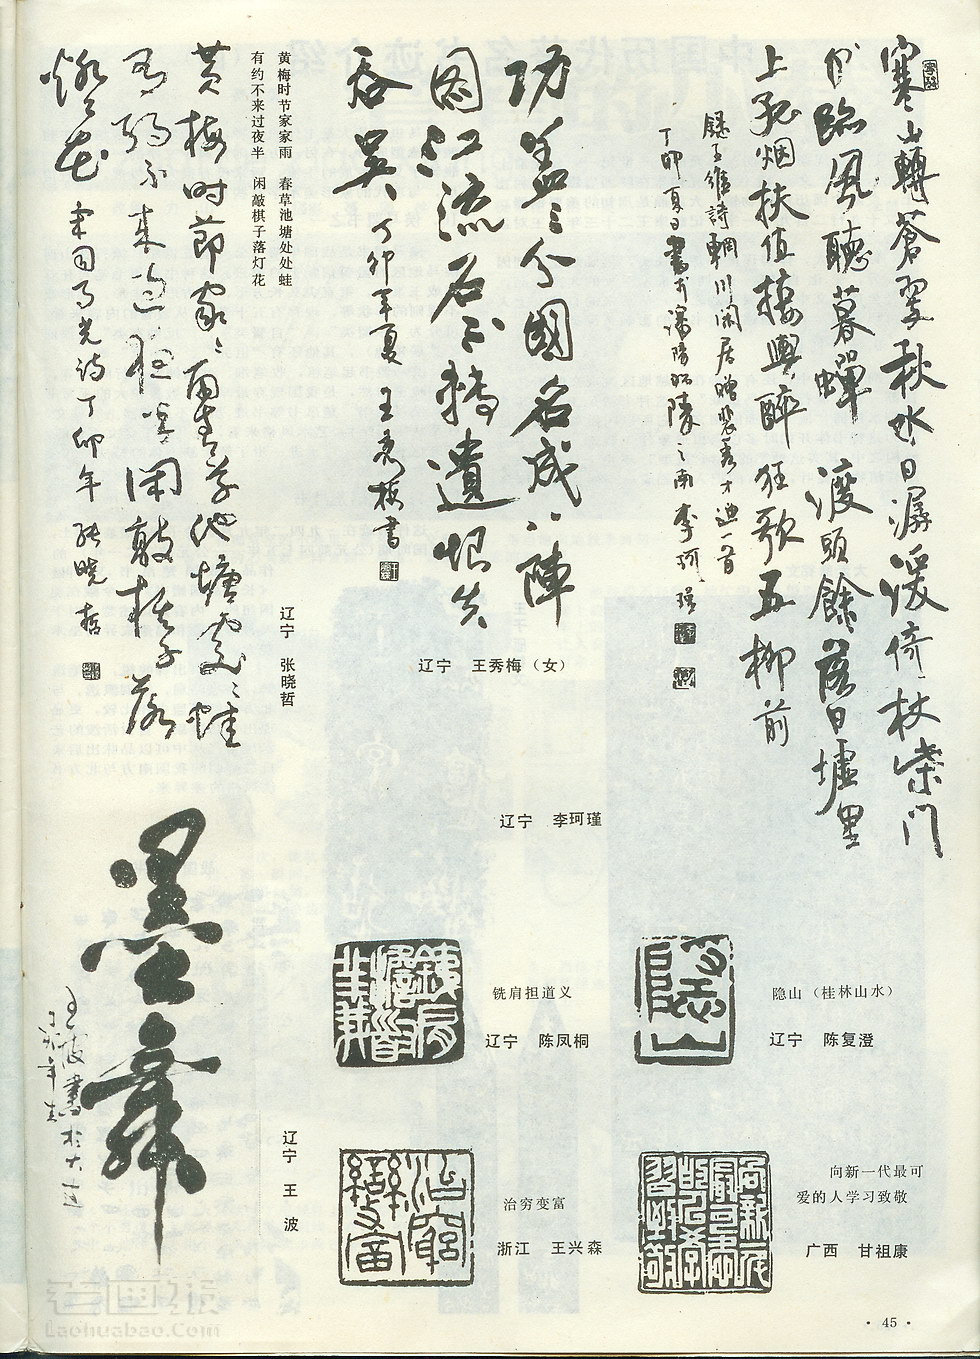 寒山轉蒼翠秋水日潺湲倚杖柴門
外臨風聽暮蟬渡頭餘落日墟里
上孤烟扶值接輿醉狂歌五柳前
録王維詩輞川闲居贈裴秀才迪一首
丁卯夏日書于瀋陽昭陵之南 李珂瑾
辽宁 李珂瑾
功盖三分國名成八陣
圖江流石不轉遺恨失
吞吴 丁卯年夏 王秀梅書
辽宁 王秀梅（女）
黄梅时节家家雨 春草池塘处处蛙
有约不来过夜半 闲敲棋子落灯花
黄梅时節家々雨青草池塘處々蛙
有約不来過夜半闲敲棋子落
燈花 宋司马光诗丁卯年 張晓哲
辽宁 张晓哲
墨舞
王波書於大连
辽宁 王 波
铣肩担道义
辽宁 陈凤桐
隐山
隐山（桂林山水）
辽宁 陈复澄
治穷变富
治穷变富
浙江 王兴森
向新一代最可
爱的人学习致敬
广西 甘祖康
· 45 ·
老画报
laohuabao.Com